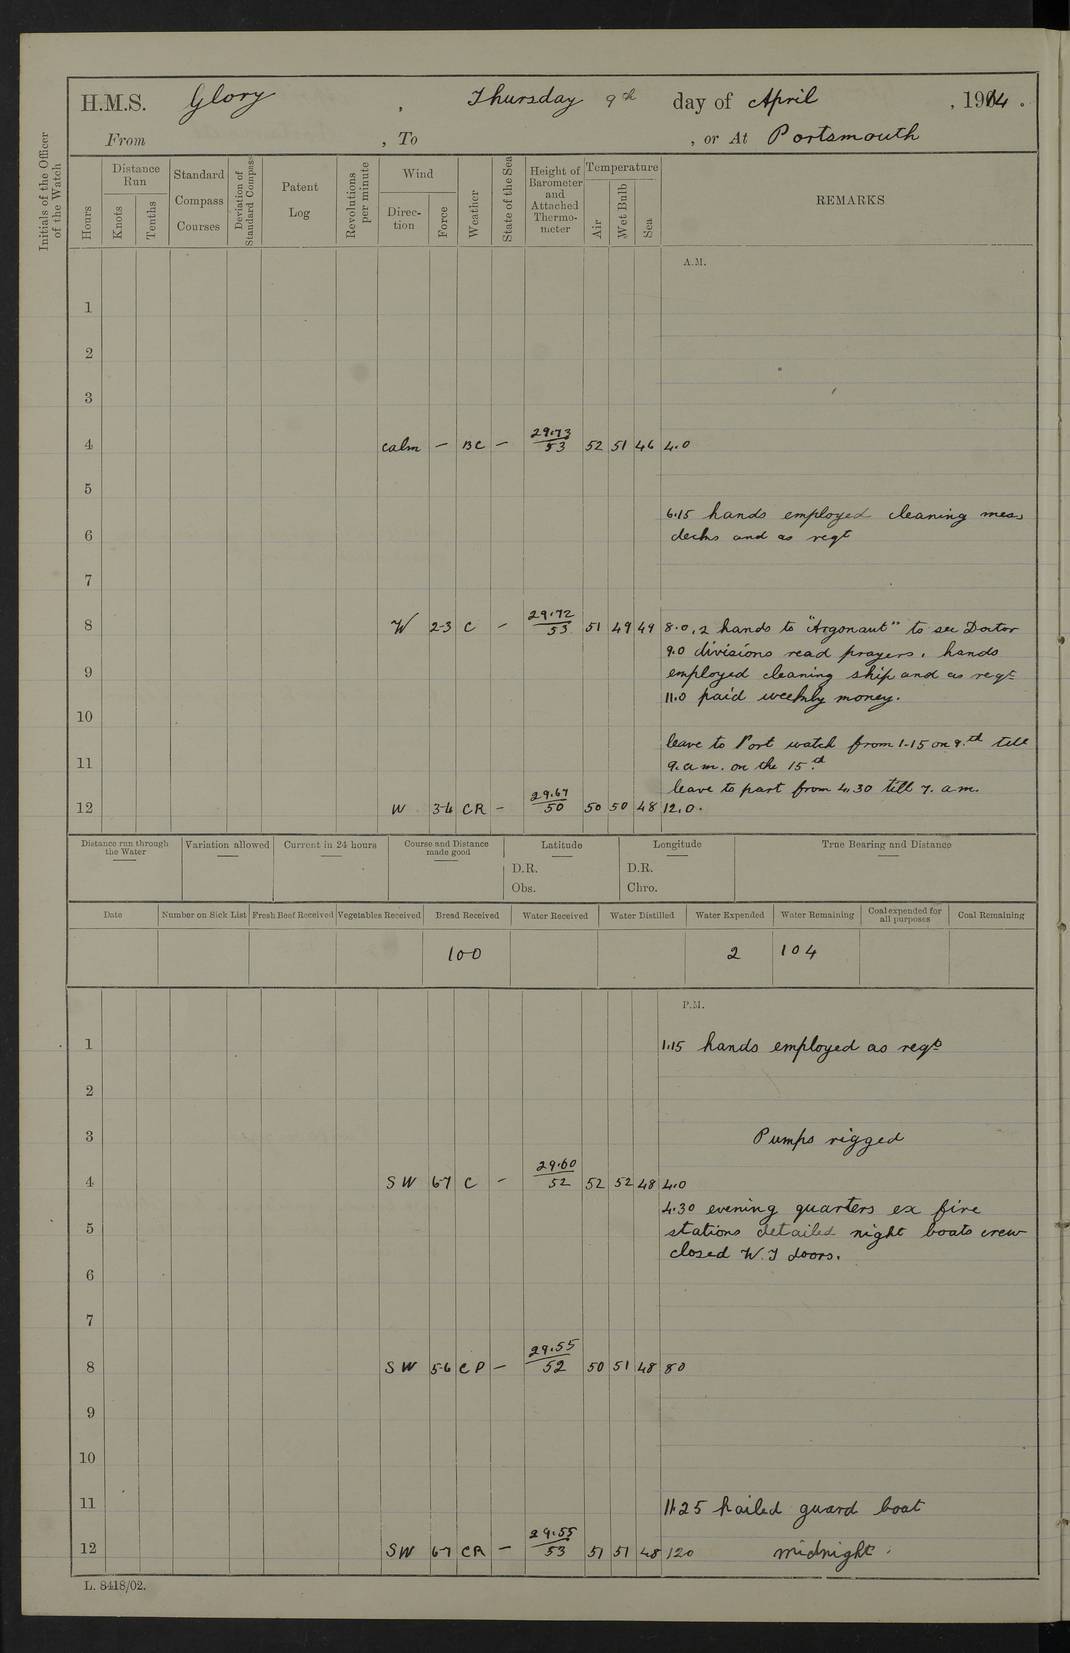 H.M.S. Glory , Thursday 9th day of April , 1914.
From , To , or At Portsmouth
Initials of the Officer of the Watch
Hours
Distance Run
Knots
Tenths
Standard Compass Courses
Deviation of Standard Compass
Patent Log
Revolutions per minute
Wind
Direc-tion
Force
Weather
State of the Sea
Height of Barometer and Attached Thermo-meter
Temperature
Air
Wet Bulb
Sea
REMARKS
A.M.
1
2
3
4 calm – BC – 29.73/53 52 51 46 4.0
5
6.15 hands employed cleaning mess
6 decks and as reqt
7
8 W 2-3 C – 29.72/53 51 49 49 8.0. 2 hands to "Argonaut" to see Doctor
9.0 divisions read prayers. hands
9 employed cleaning ship and as reqt
11.0 paid weekly money.
10
leave to Port watch from 1-15 on 9.th till
11 9.a.m. on the 15.th
leave to part from 4.30 till 7. a.m.
12 W 3-4 CR – 29.67/50 50 50 48 12.0.
Distance run through the Water
Variation allowed
Current in 24 hours
Course and Distance made good
Latitude
Longitude
True Bearing and Distance
D.R. D.R.
Obs. Chro.
Date
Number on Sick List
Fresh Beef Received
Vegetables Received
Bread Received
Water Received
Water Distilled
Water Expended
Water Remaining
Coal expended for all purposes
Coal Remaining
100 2 104
P.M.
1 1.15 hands employed as reqd
2
3 Pumps rigged
4 SW 6-7 C – 29.60/52 52 52 48 4.0
4.30 evening quarters ex fire
5 stations detailed night boats crew
closed W.T doors.
6
7
8 SW 5-6 CP – 29.55/52 50 51 48 80
9
10
11 11.25 hailed guard boat
12 SW 6-7 CR – 29.55/53 51 51 48 120 midnight.
L. 8418/02.